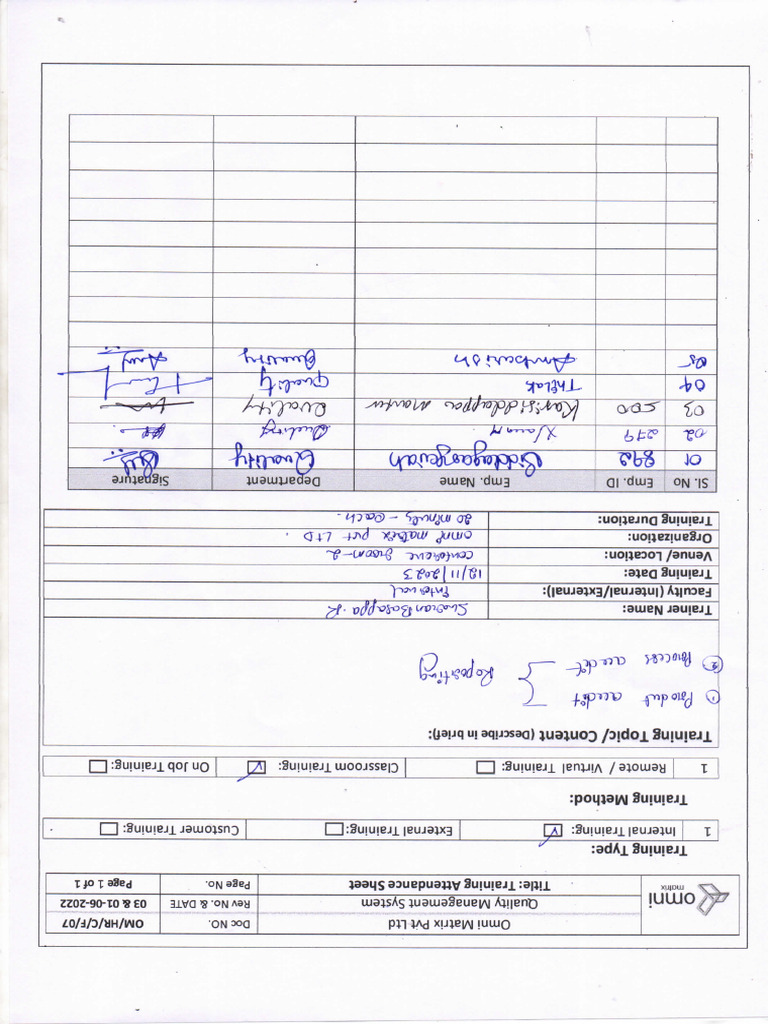 omni
matrix
Omni Matrix Pvt Ltd
Doc NO.
OM/HR/C/F/07
Quality Management System
Rev No. & DATE
03 & 01-06-2022
Title: Training Attendance Sheet
Page No.
Page 1 of 1
Training Type:
1 Internal Training: External Training: Customer Training:
Training Method:
1 Remote / Virtual Training: Classroom Training: On Job Training:
Training Topic/ Content (Describe in brief):
① Produt acedit
② Process acedit
Reposting
Trainer Name: Basappa.R
Faculty (Internal/External): Internal
Training Date: 12/11/2023
Venue/ Location: conference room-2
Organization: omni matrix pvt LTD.
Training Duration: 20 minuts - each.
Sl. No Emp. ID Emp. Name Department Signature
01 892 Quality
02 279
03 500 Karisiddappa Quality
04 Thilak Quality
05 Quality